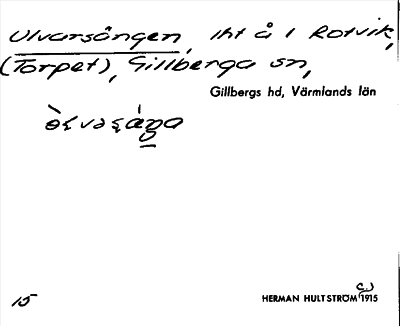 Ulvarsängen, lht å 1 Rotvik,
(Torpet), Gillberga sn,
Gillbergs hd, Värmlands län
15
HERMAN HULTSTRÖM 1915